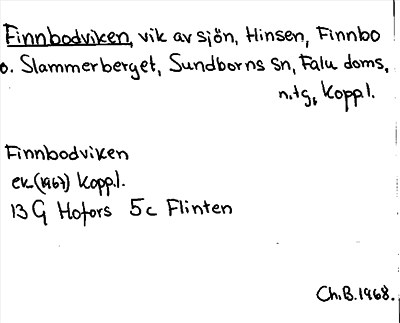 Finnbodviken, vik av sjön, Hinsen, Finnbo
o. Slammerberget, Sundborns sn, Falu doms,
n.tg, Koppl.
Finnbodviken
ek (1967) Koppl.
13 G Hofors 5c Flinten
Ch.B.1968.